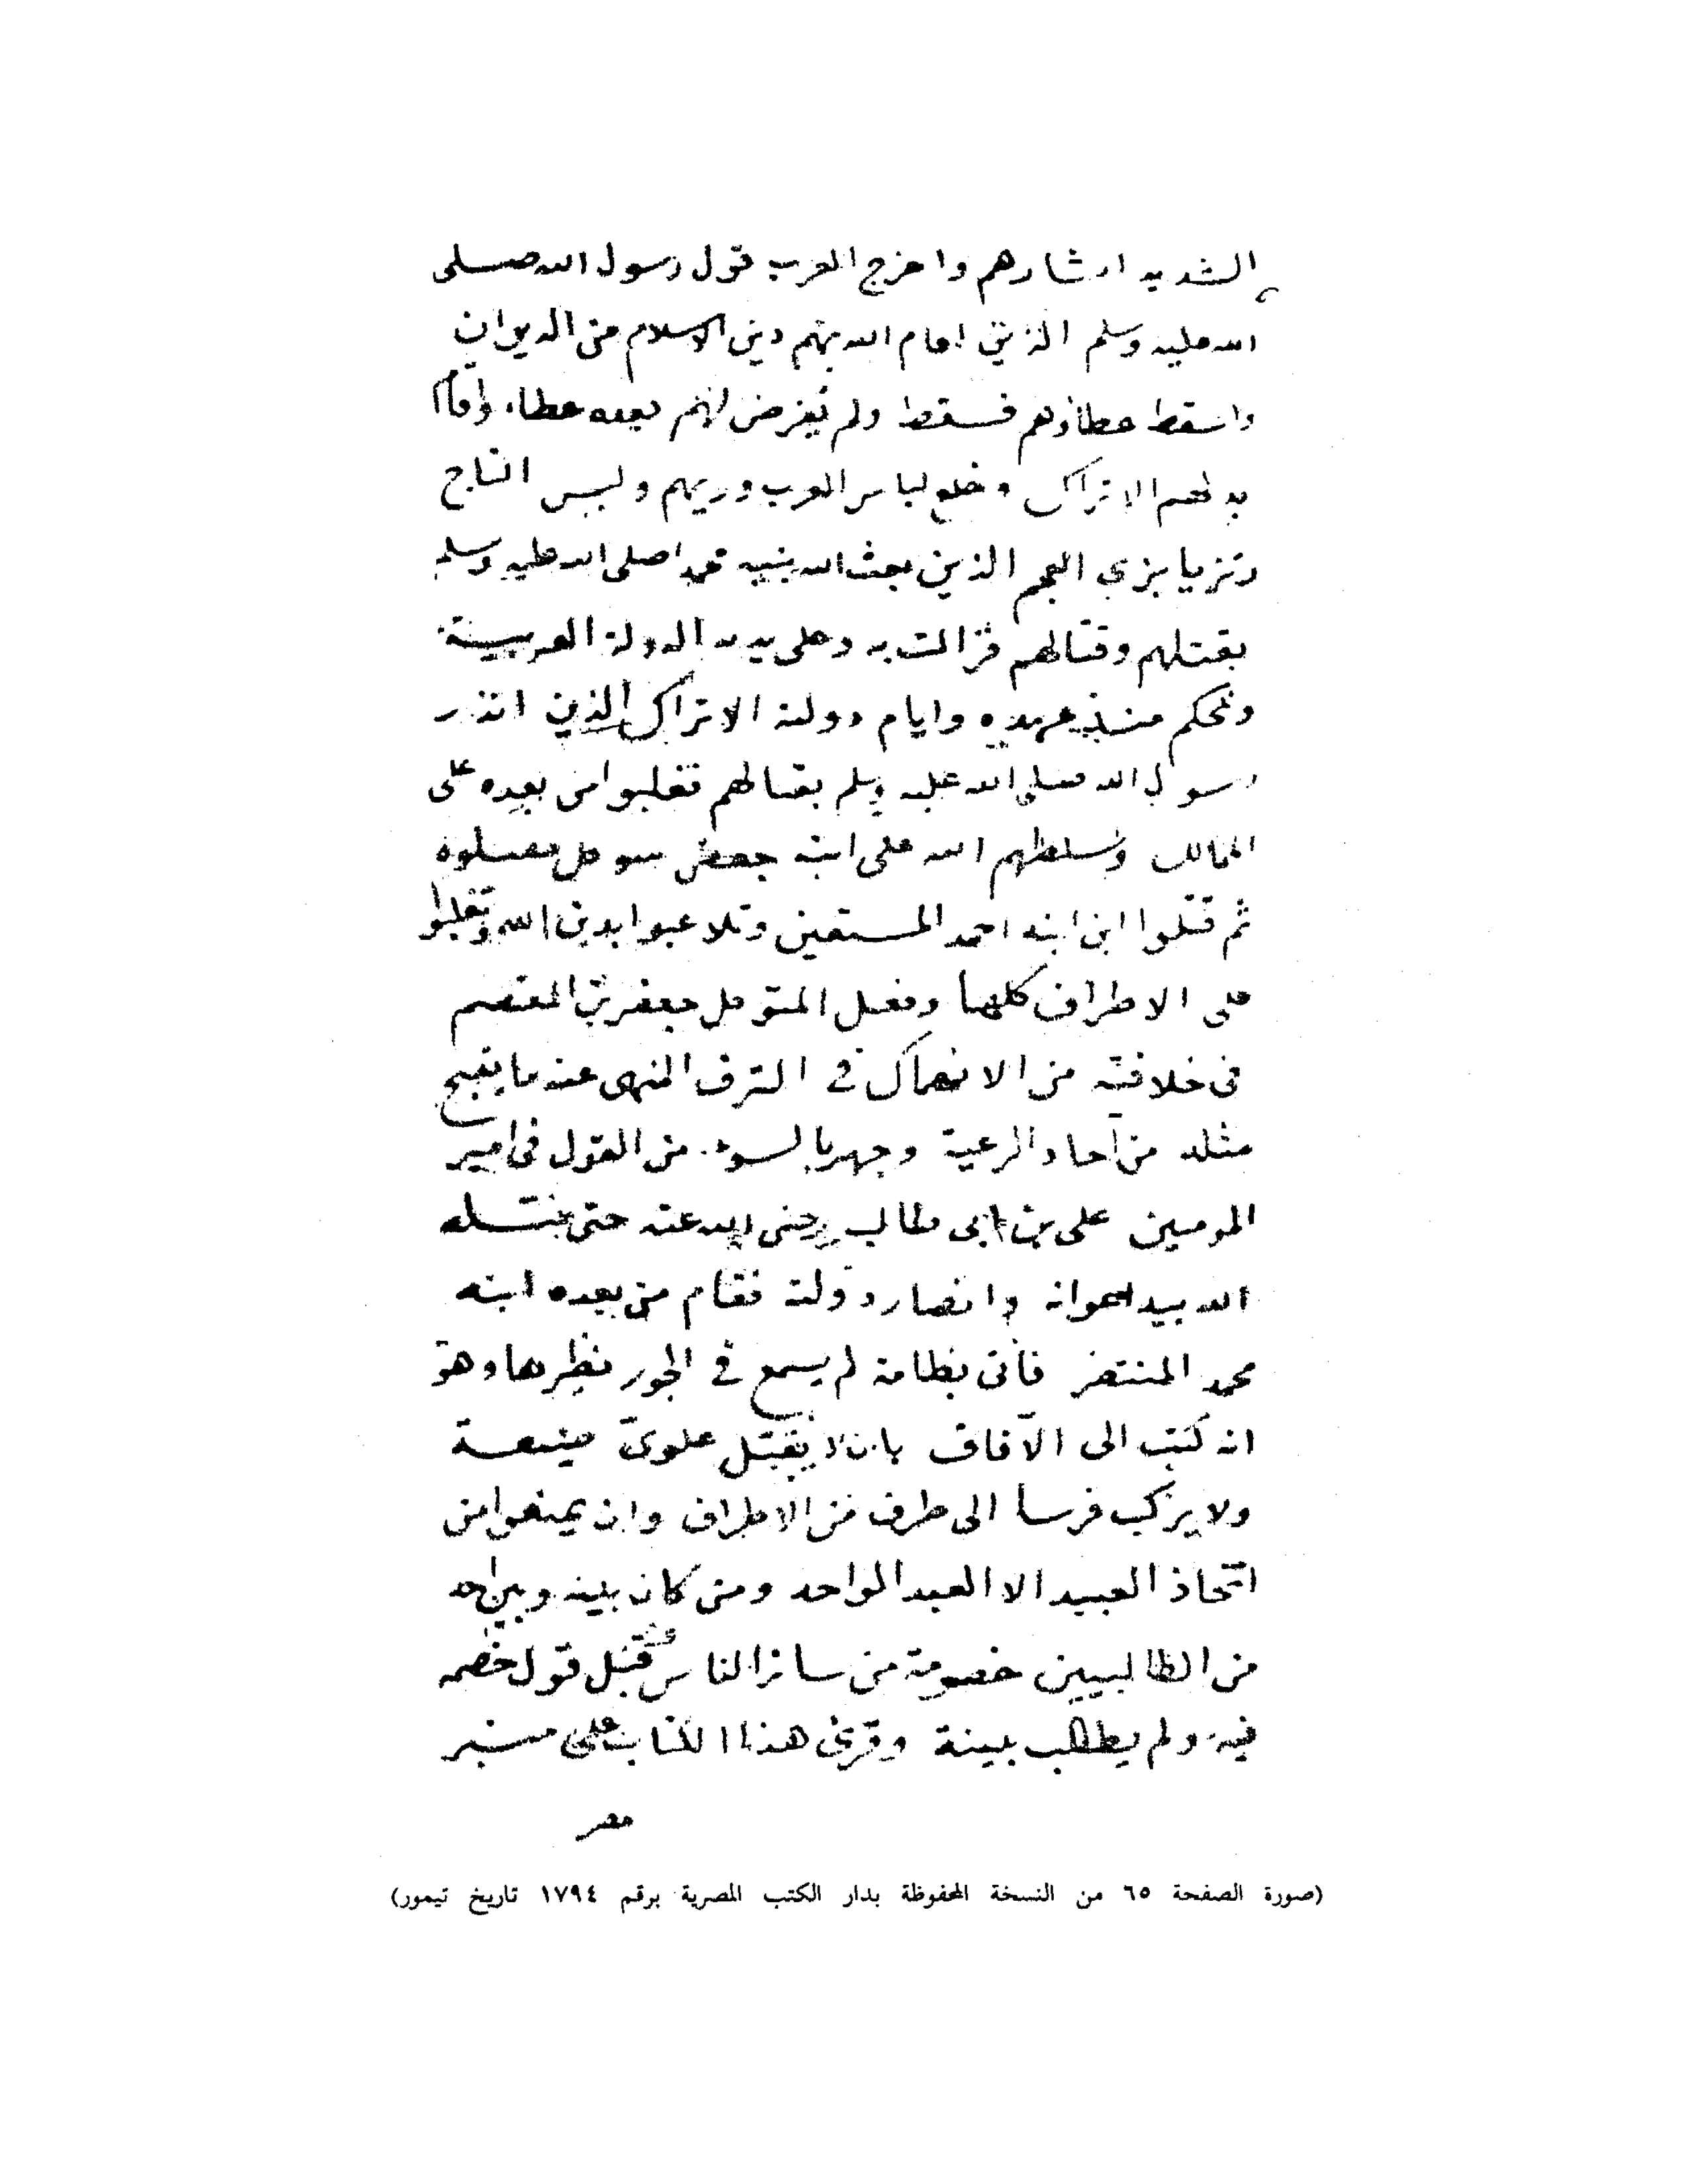 الشديد ابشارهم واخرج العرب قول رسول الله صلى
الله عليه وسلم الذين اقام الله بهم دين الاسلام من الديوان
واسقط عطاؤهم فسقط ولم يفرض لهم بعده عطاء واقام
بدلهم الاتراك وخلع لباس العرب وزيهم ولبس التاج
وتزيا بزي العجم الذين بعث الله نبيه محمدا صلى الله عليه وسلم
بقتلهم وقتالهم فزالت به وعلى يديه الدولة العربية
وتحكم منذ عهده وايام دولته الاتراك الذين انذر
رسول الله صلى الله عليه وسلم بقتالهم فغلبوا من بعده على
الممالك وسلطهم الله على ابنه جعفر المتوكل فقتلوه
ثم قتلوا ابن ابنه احمد المستعين وتلاعبوا بدين الله وتغلبوا
على الاطراف كلها وفعل المتوكل جعفر بن المعتصم
فى خلافته من الانهماك في الترف المنهى عنه ما يقبح
مثله من آحاد الرعية وجهر بالسوء من القول فى امير
المومنين على بن ابى طالب رضى الله عنه حتى قتله
الله بيد اعوانه وانصار دولته فقام من بعده ابنه
محمد المنتصر فأتى بطامة لم يسمع في الجور نظيرها وهو
انه كتب الى الآفاق بان لا يقبل علوى ضيعة
ولا يركب فرسا الى طرف من الاطراف وان يمنعوا من
اتخاذ العبيد الا العبد الواحد ومن كان بينه وبين احد
من الطالبيين خصومة من سائر الناس قبل قول خصمه
فيه ولم يطالب ببينة وقرئ هذا الكتاب على منبر
مصر
(صورة الصفحة ٦٥ من النسخة المحفوظة بدار الكتب المصرية برقم ١٧٩٤ تاريخ تيمور)